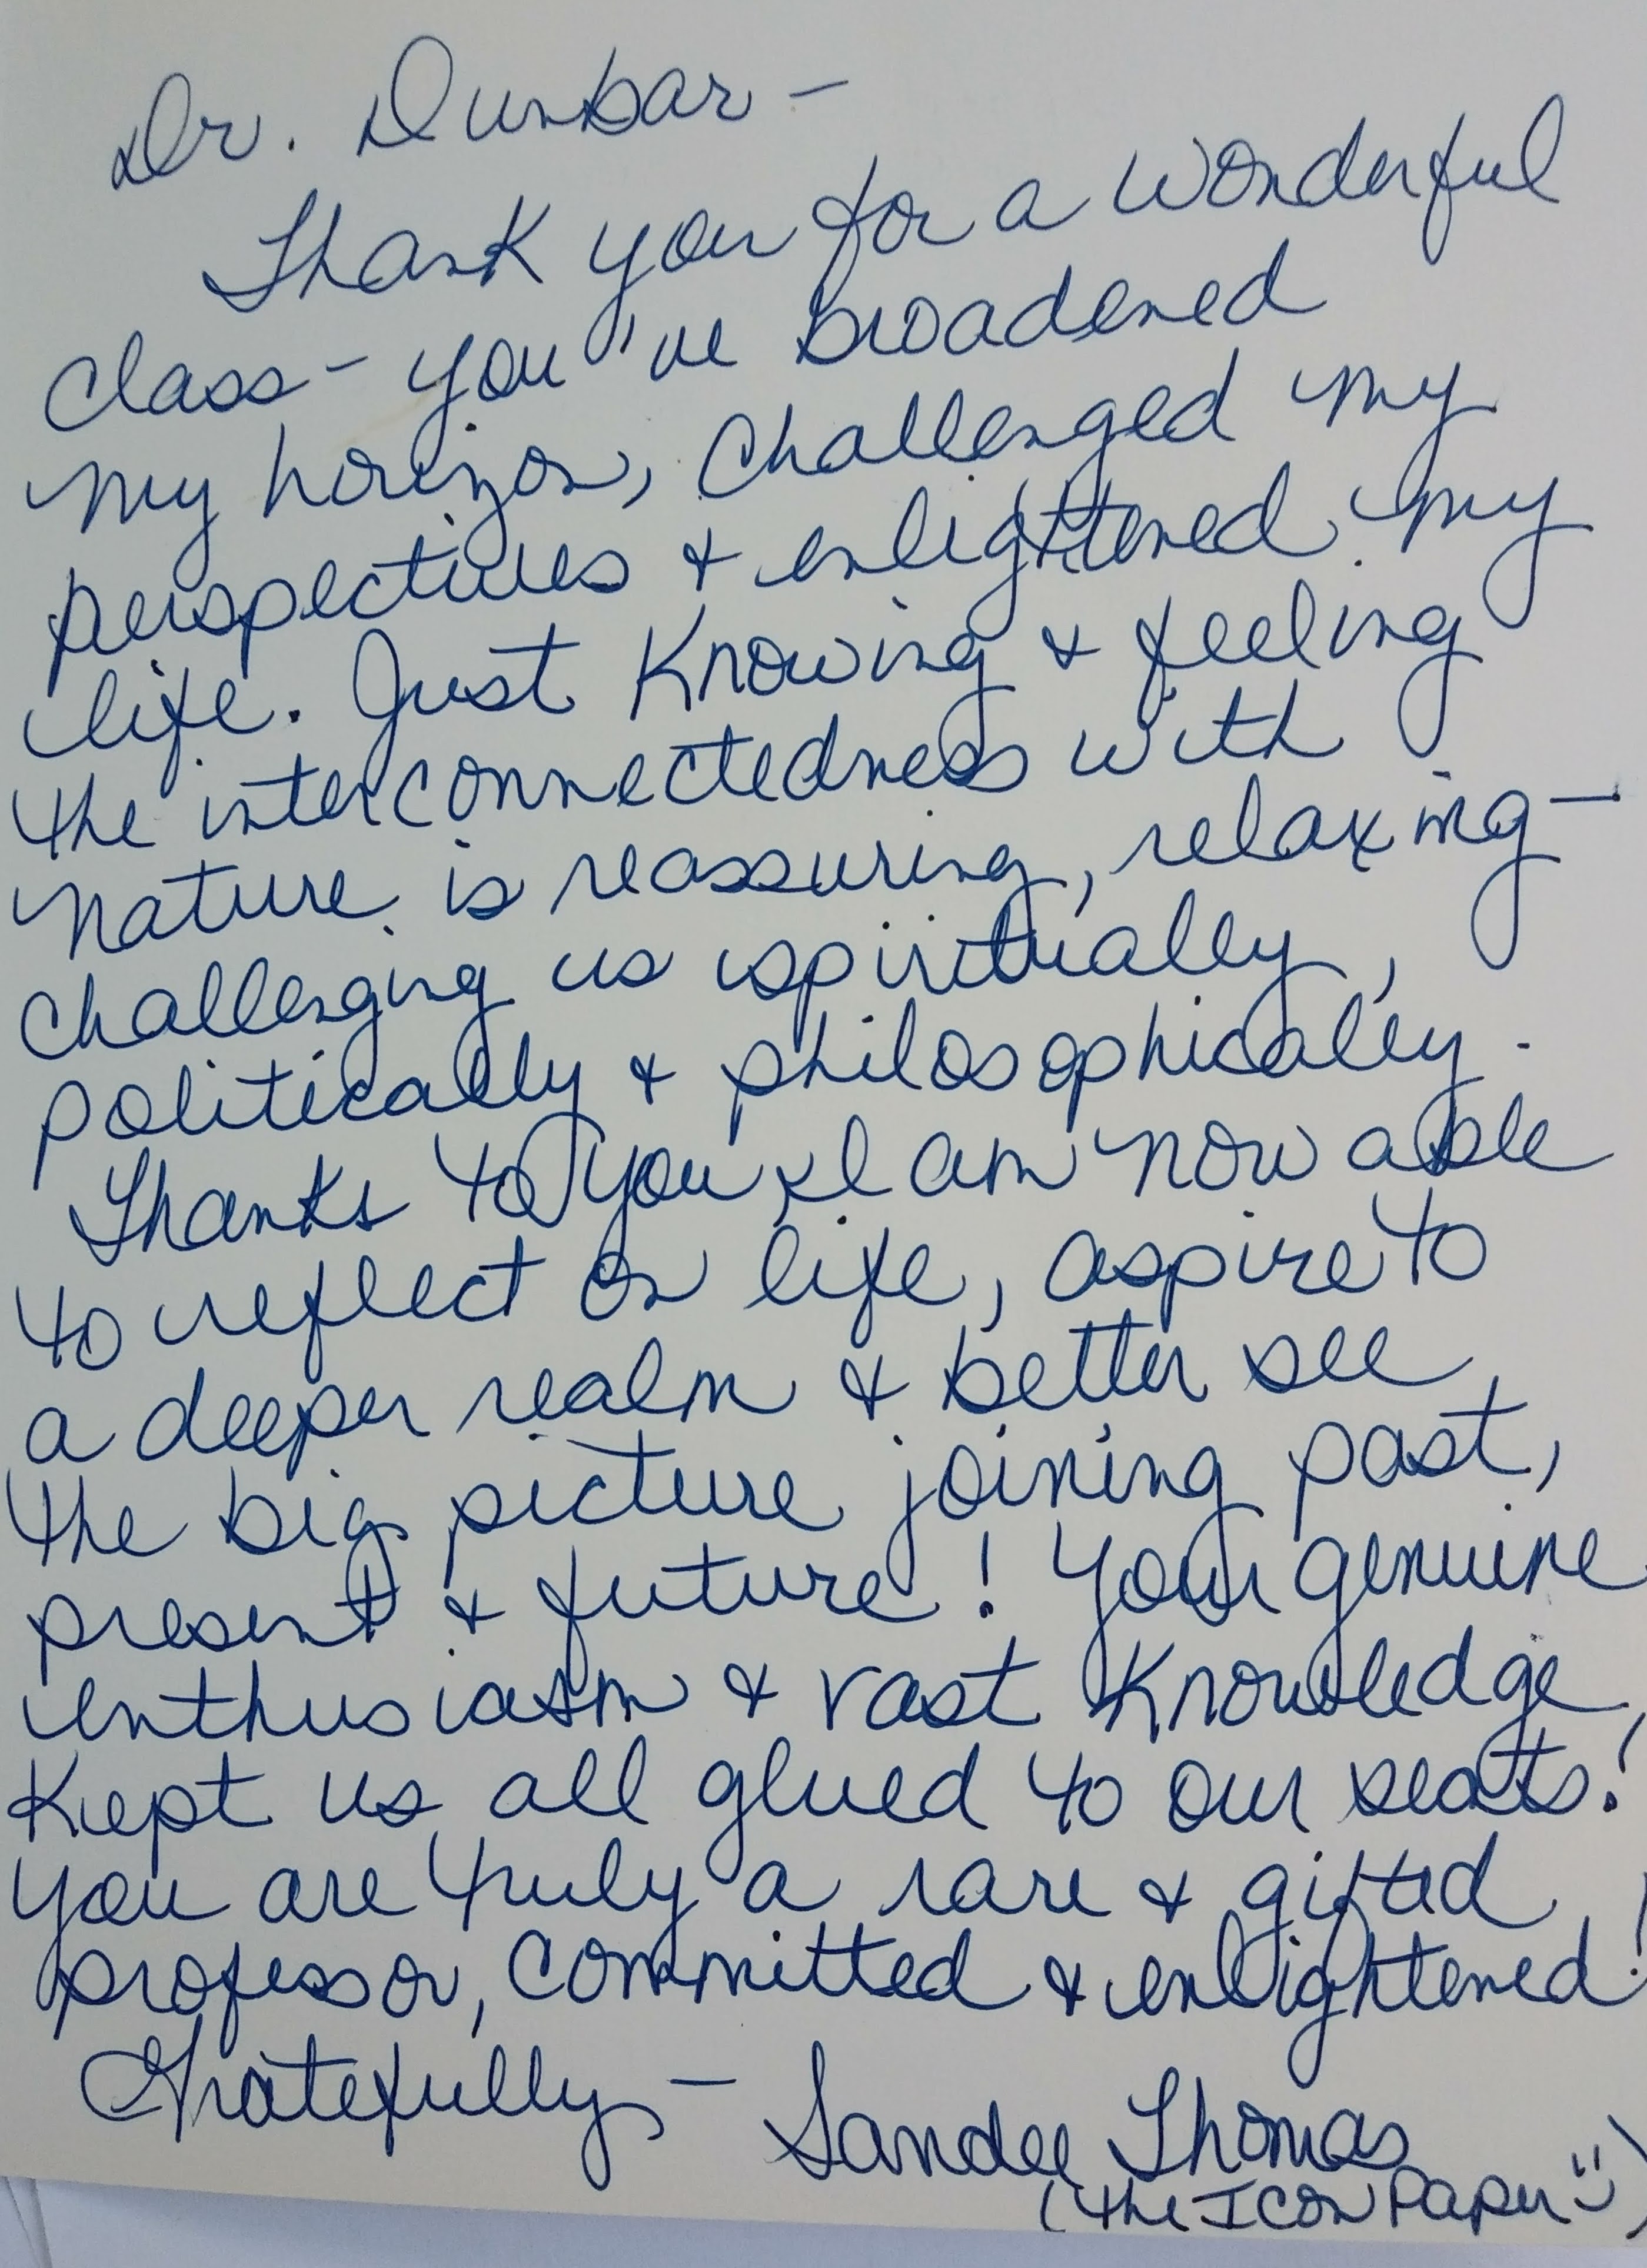 Dr. Dunbar –
Thank you for a wonderful
class – you've broadened
my horizon, challenged my
perspectives & enlightened my
life. Just knowing & feeling
the interconnectedness with
nature is reassuring, relaxing –
challenging us spiritually,
politically & philosophically.
Thanks to you, I am now able
to reflect on life, aspire to
a deeper realm & better see
the big picture joining past,
present & future! Your genuine
enthusiasm & vast knowledge
kept us all glued to our seats!
You are truly a rare & gifted
professor, committed & enlightened!
Gratefully – Sandee Thomas
(the ICON Paper ☺)